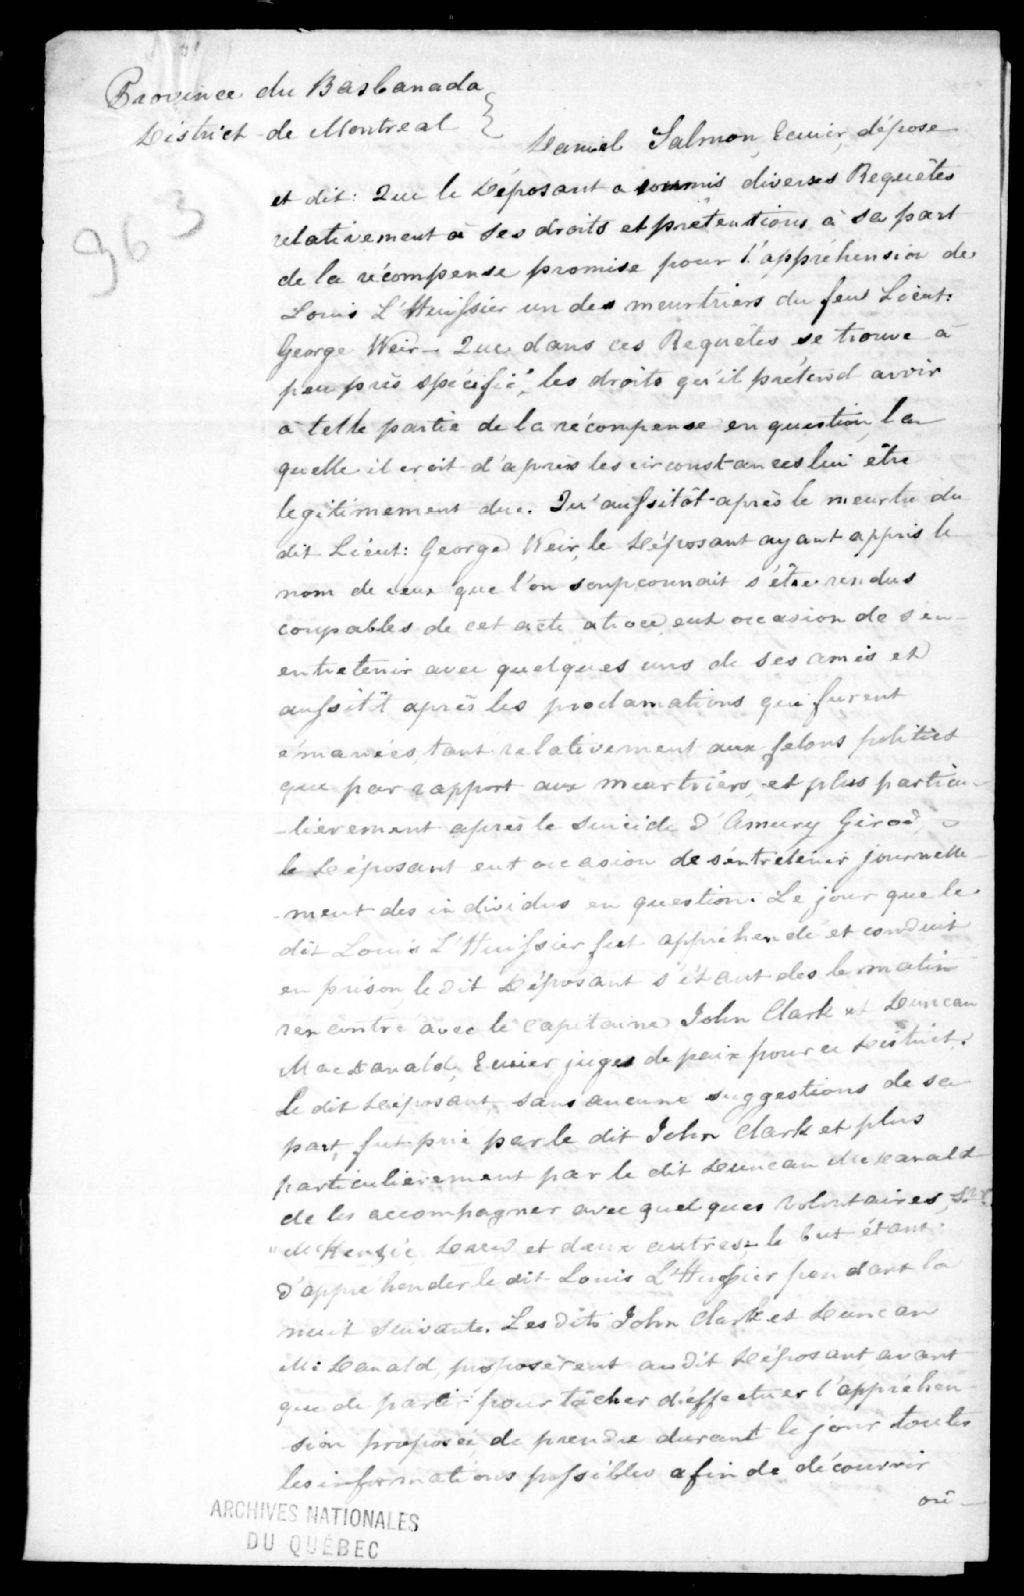 Province du Bas Canada
District de Montreal
Daniel Salmon, Ecuier, dépose
963
et dit: Que le Déposant a soumis diverses Requêtes
relativement à ses droits et prétentions à sa part
de la récompense promise pour l'appréhension de
Louis L'Huissier un des meurtriers du feu Lieut:
George Weir - Que dans ces Requêtes se trouve à
peu près spécifié, les droits qu'il prétend avoir
à telle partie de la récompense en question la
quelle il croit d'après les circonstances lui être
legitimement due. Qu'aussitôt après le meurtre du
dit Lieut: George Weir, le Déposant ayant appris le
nom de ceux que l'on soupconnait s'être rendus
coupables de cet acte atroce, eut occasion de s'en
entretenir avec quelques uns de ses amis et
aussitôt après les proclamations qui furent
émanées, tant relativement aux felons politics
que par rapport aux meurtriers, et plus particu-
-lièrement après le suicide d'Amury Girod,
le Déposant eut occasion de s'entretenir journelle-
-ment des individus en question. Le jour que le
dit Louis L'Huissier fut appréhendé et conduit
en prison, le dit Déposant s'étant dès le matin
rencontré avec le Capitaine John Clark et Duncan
MacDanald, Ecuier juges de paix pour ce District,
Le dit Déposant, sans aucune suggestions de sa
part, fut prié par le dit John Clark et plus
particulièrement par le dit Duncan McDanald
de les accompagner avec quelques Volontaires,
McKenzie, et deux autres, le but étant
d'appréhender le dit Louis L'Huissier pendant la
nuit suivante. Les dits John Clark et Duncan
McDanald, proposèrent au dit Déposant avant
que de partir pour tâcher d'effectuer l'appréhen-
sion proposée, de prendre durant le jour toutes
les informations possibles afin de découvrir
où -
ARCHIVES NATIONALES
DU QUÉBEC